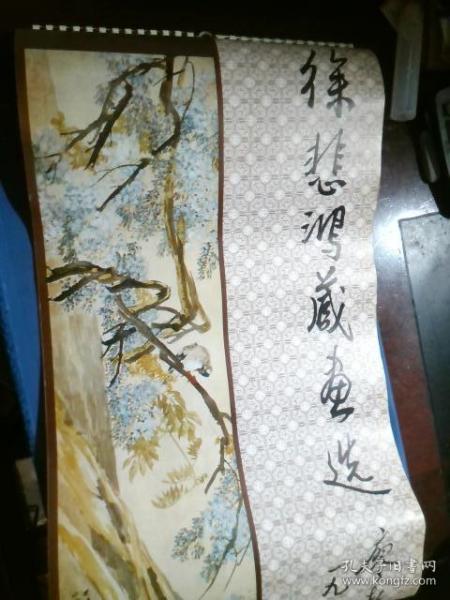 徐悲鸿藏画选
一九
孔夫子旧书网
www.kongfz.com